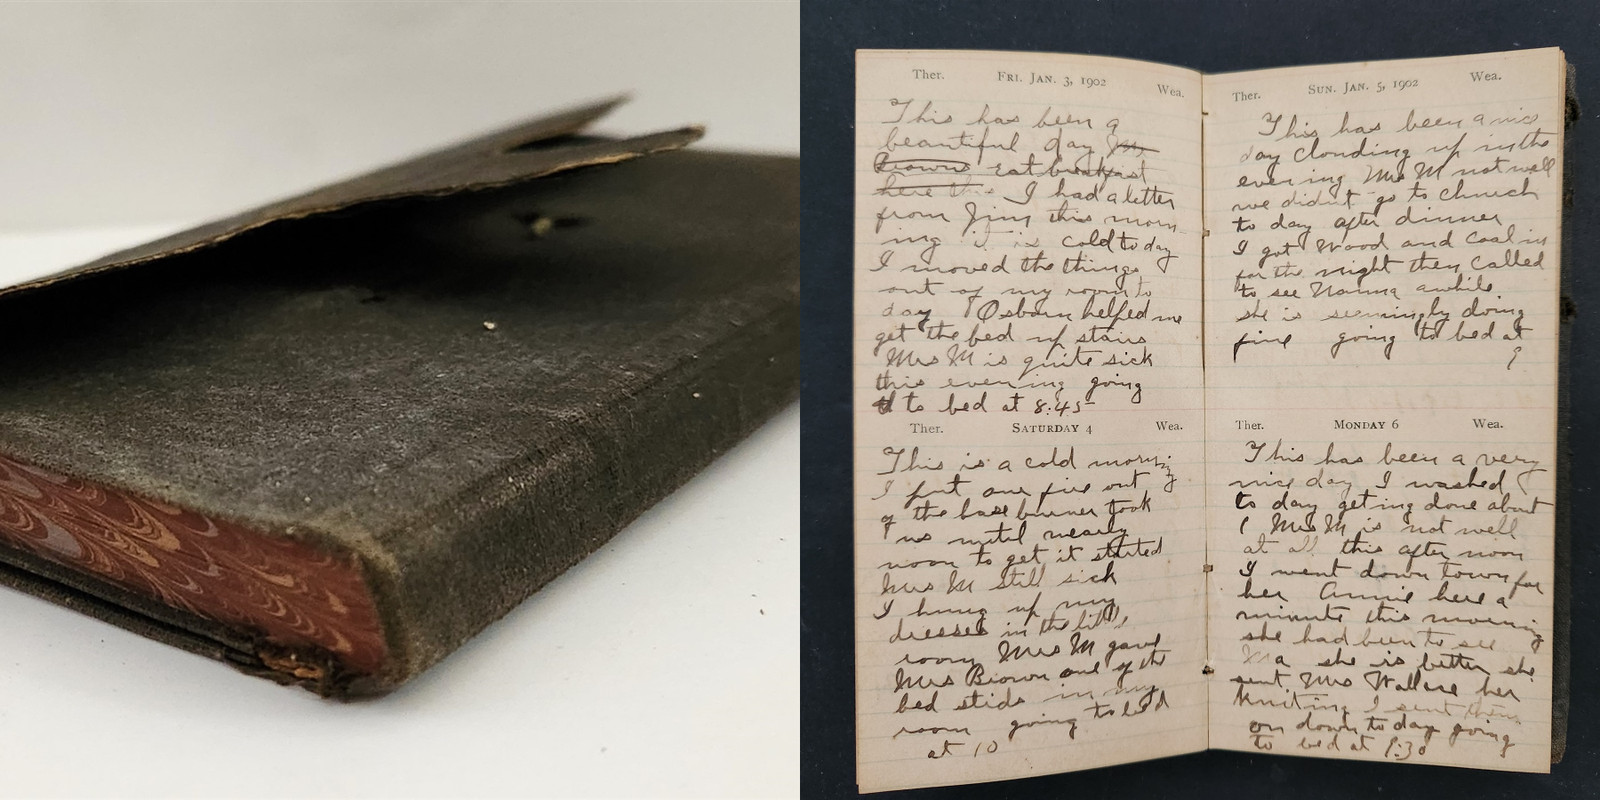 Ther. FRI. JAN. 3, 1902 Wea.
This has been a
beautiful day
Brown eat breakfast
here this I had a letter
from Jim this morn
ing it is cold to day
I moved the things
out of my room to
day Osborn helped me
get the bed up stairs
Mrs M is quite sick
this evening going
to bed at 8:45
Ther. SATURDAY 4 Wea.
This is a cold morning
I put one fire out
of the base burner took
us until nearly
noon to get it started
Mrs M still sick
I hung up my
dresses in the little
room Mrs M gave
Mrs Brown one of the
bed stids in my
room going to bed
at 10
Ther. SUN. JAN. 5, 1902 Wea.
This has been a nice
day clouding up in the
evening Mrs M not well
we didnt go to church
to day after dinner
I got wood and coal in
for the night then called
to see Nanna awhile
she is seemingly doing
fine going to bed at
9
Ther. MONDAY 6 Wea.
This has been a very
nice day I washed
to day geting done about
1 Mrs M is not well
at all this after noon
I went down town for
her Annie here a
minute this morning
she had been to see
she is better she
sent Mrs Wallace her
kniting I sent them
on down to day going
to bed at :30